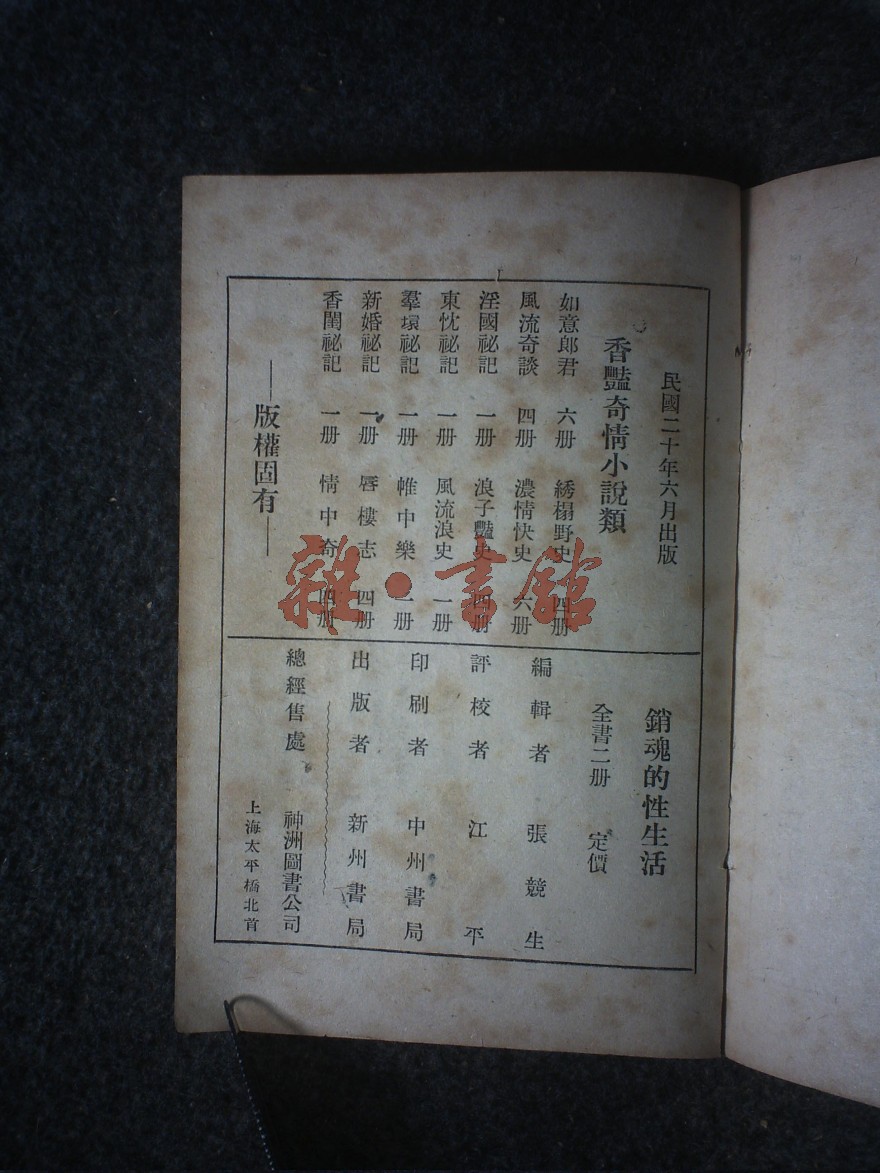 民國二十年六月出版
香豔奇情小說類
如意郎君 六册 綉榻野史 四册
風流奇談 四册 濃情快史 六册
淫國祕記 一册 浪子豔史 四册
東忱祕記 一册 風流浪史 一册
羣環祕記 一册 帷中樂 一册
新婚祕記 一册 唇樓志 四册
香閨祕記 一册 情中奇 四册
版權固有
銷魂的性生活
全書二册 定價
編輯者 張競生
評校者 江平
印刷者 中州書局
出版者 新州書局
總經售處 神洲圖書公司
上海太平橋北首
雜·書館